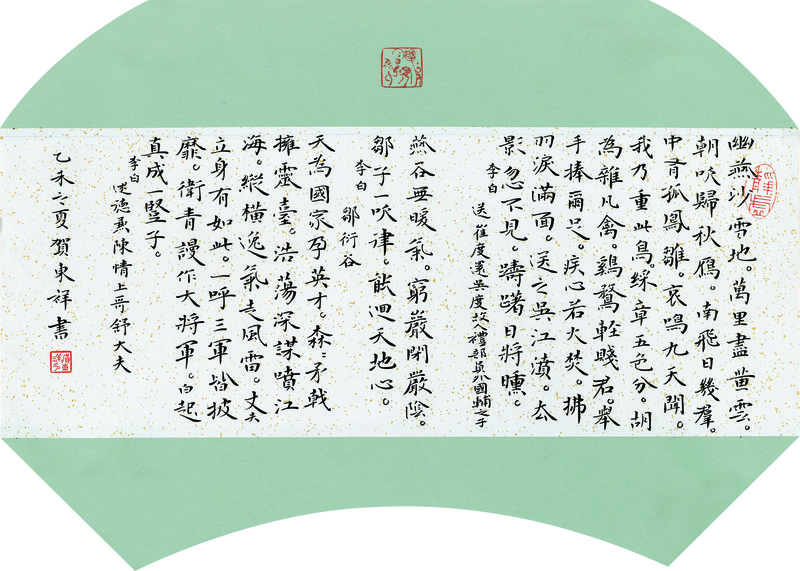 幽燕沙雪地。萬里盡黃雲。
朝吹歸秋鴈。南飛日幾羣。
中有孤鳳雛。哀鳴九天聞。
我乃重此鳥。綵章五色分。胡
為雜凡禽。鷄鶩輕賤君。舉
手捧爾足。疾心若火焚。拂
羽淚滿面。送之吳江濆。去
影忽不見。躊躇日將曛。
李白 送崔度還吳度故人禮部員外國輔之子
燕谷無暖氣。窮巖閉嚴陰。
鄒子一吹律。能迴天地心。
李白 鄒衍谷
天為國家孕英才。森〻矛戟
擁靈臺。浩蕩深謀噴江
海。縱橫逸氣走風雷。丈夫
立身有如此。一呼三軍皆披
靡。衛青謾作大將軍。白起
真成一豎子。
李白 述德兼陳情上哥舒大夫
乙未之夏賀東祥書